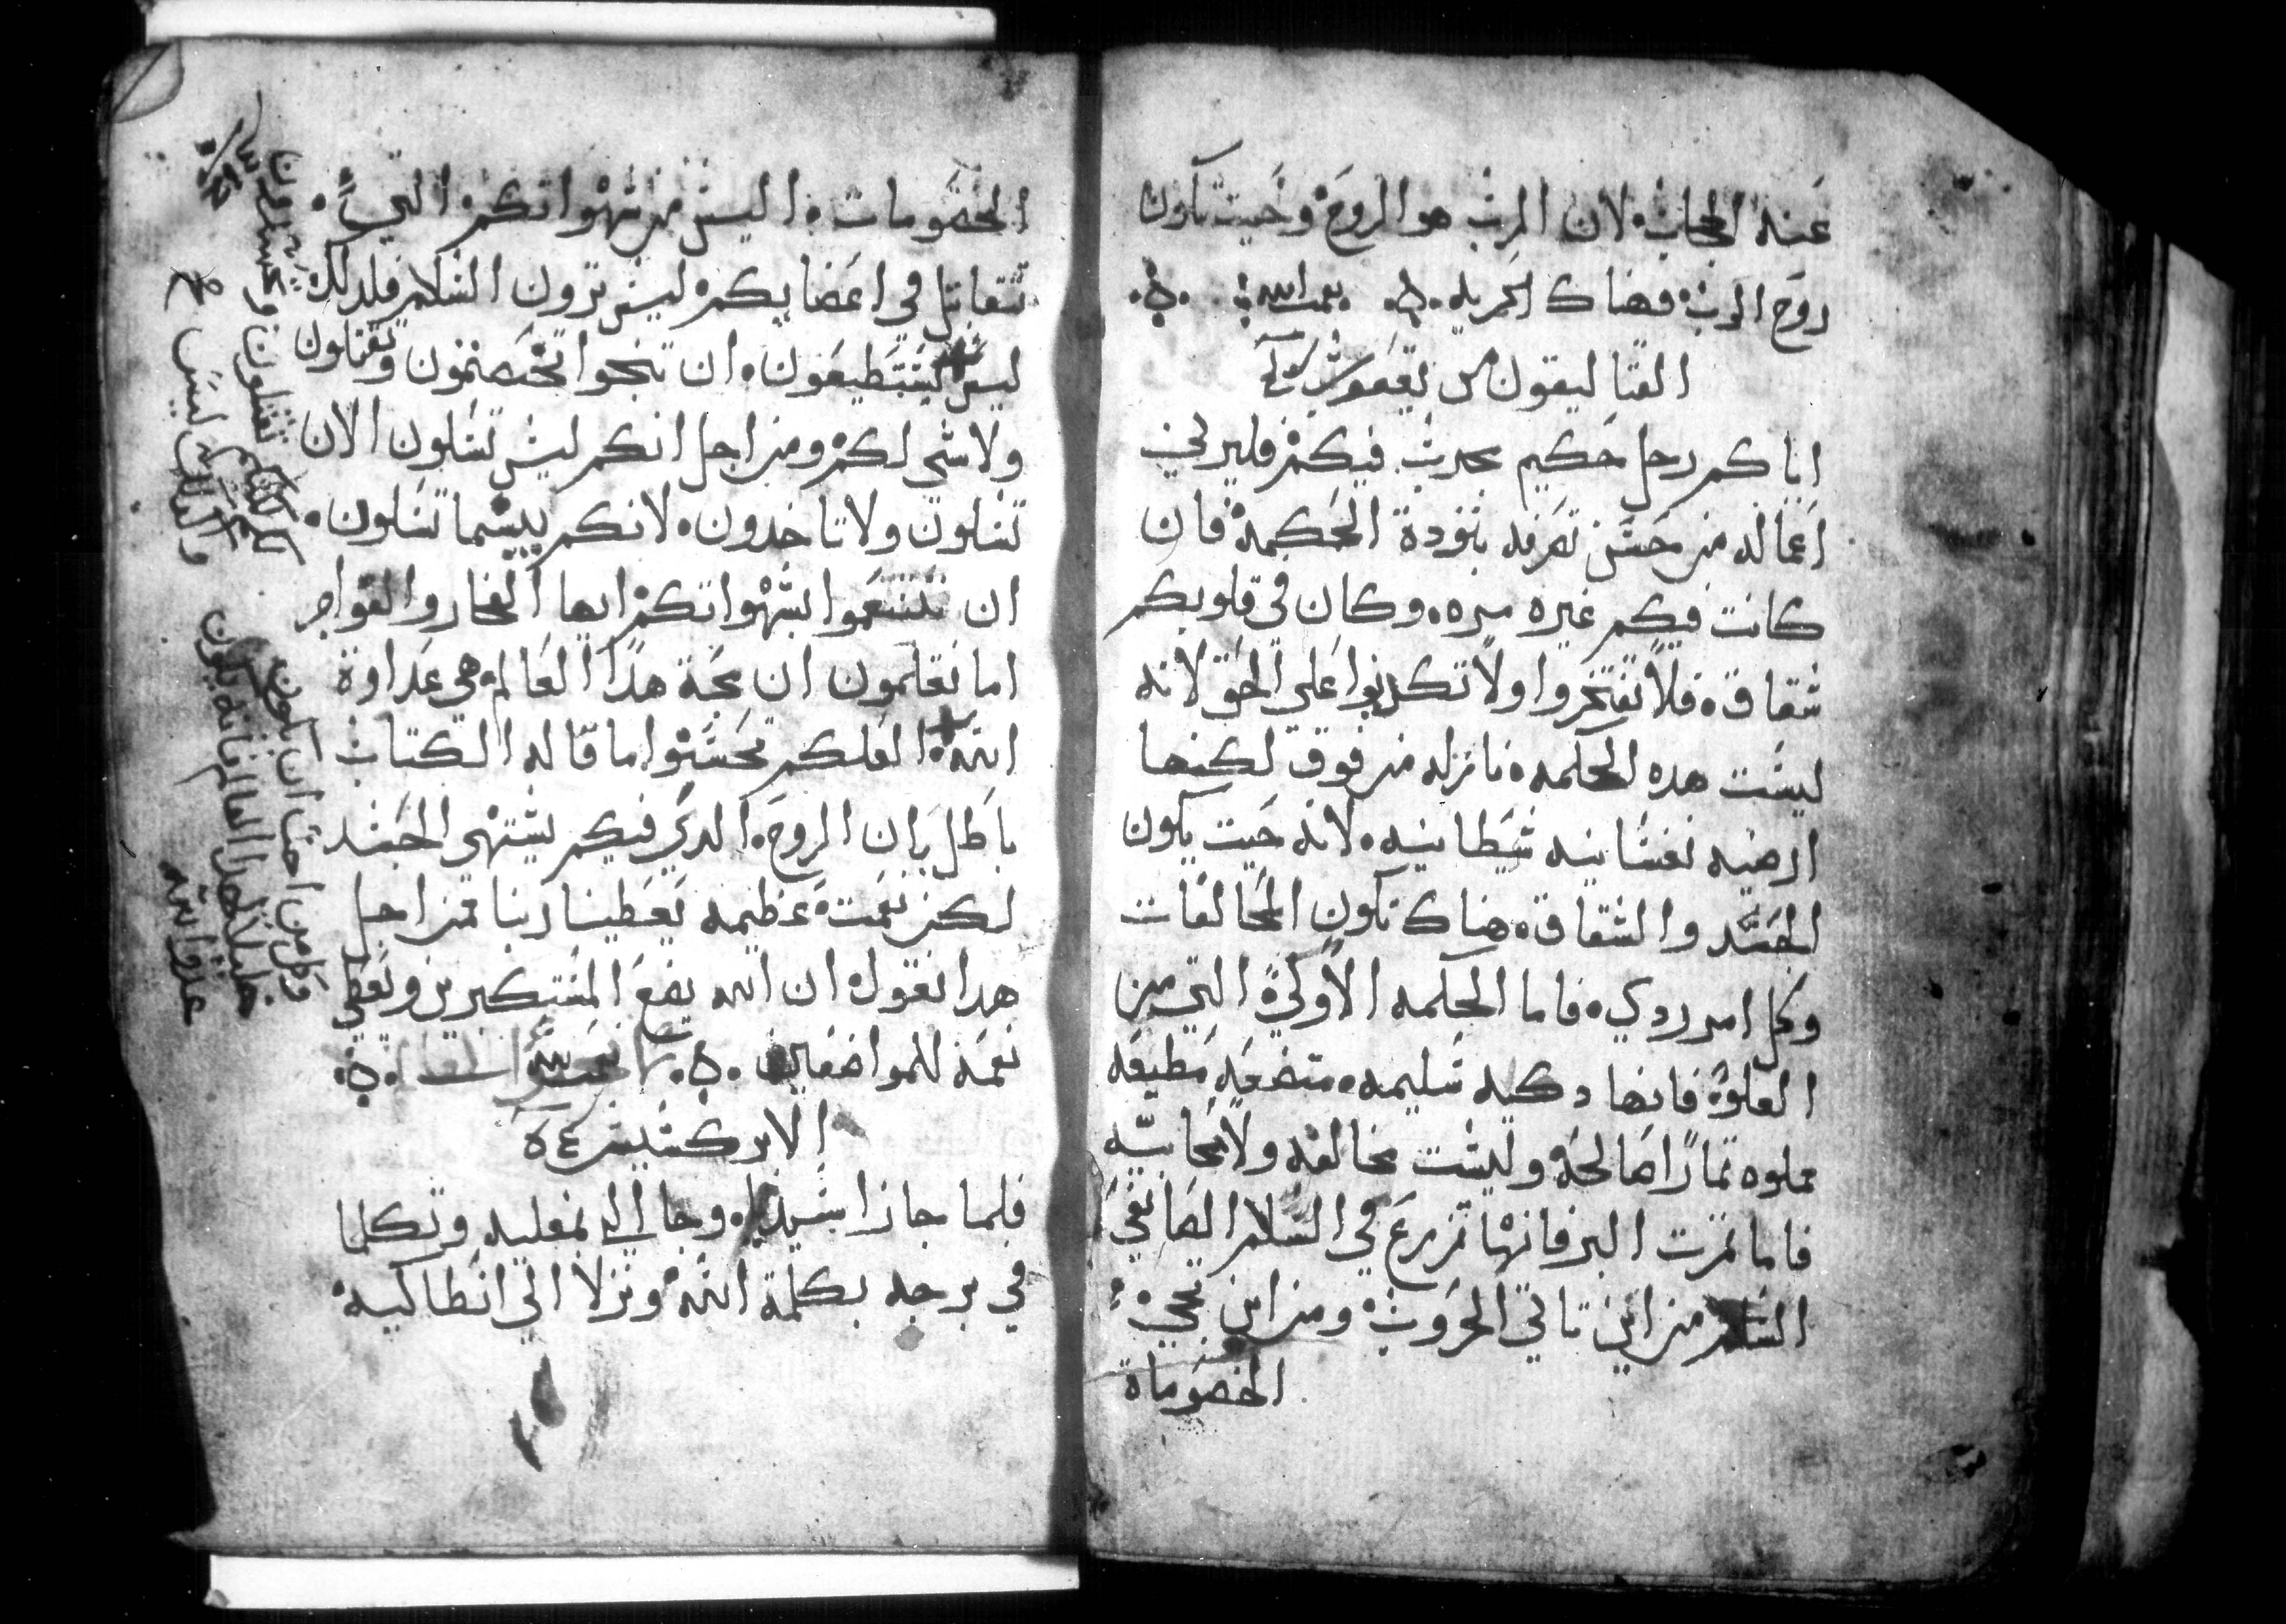 عنه الحجاب لان الرب هو الروح وحيت تكون
روح الرب فهناك الحريه بنعمت الله
القتاليقون من يعقوب
اياكم رجل حكيم مجرب فيكم فليرني
اعماله من حسن تصرفه بتودة الحكمة فان
كانت فيكم غيره مره وكان في قلوبكم
شقاق فلا تفتخروا ولا تكدبوا علي الحق لانه
ليست هده الحكمه نازله من فوق لكنها
ارضيه نفسانيه شيطانيه لانه حيت يكون
الحسد والشقاق هناك تكون المخالفات
وكل امر ردي فاما الحكمه الاولي التي من
العلو فانها دكيه سليمه متضعه مطيعه
مملوه تمارا صالحه وليست مخالفه ولا محابيه
فاما تمرت البر فانها تزرع في السلام لصانعي
السلام من اين تاتي الحروب ومن اين تجي
الخصوماة
الخصومات اليس من شهواتكم التي
تتقاتل في اعضايكم ليس ترون السلام فلدلك
ليس تستطيعون ان تنجوا تختصمون وتقتلون
ولا شي لكم ومن اجل انكم ليس تسلون الان
تسلون ولا تاخدون لانكم بيسما تسلون
ان تتنعموا بشهواتكم ايها الفجار والفواجر
اما تعلمون ان محبة هدا العالم هي عداوة
الله العلكم تحسبوا ما قاله الكتاب
باطل بان الروح الدي فيكم يشتهي الحسد
لكن نعمت عظيمه يعطينا ربنا فمن اجل
هدا نقول ان الله يضع المستكبرين ونعطي
نعمه للمواضعين
الابركسيس
فلما جازا بسيديا وجا الي بمفليه وتكلما
في برجه بكلمة الله ونزلا الي انطاكيه
لكنكم تقتلون وتحسدون
والقتال ليس
وكل من احب ان يكون
خليلا لهدا العالم فانه يكون
عدوا لله